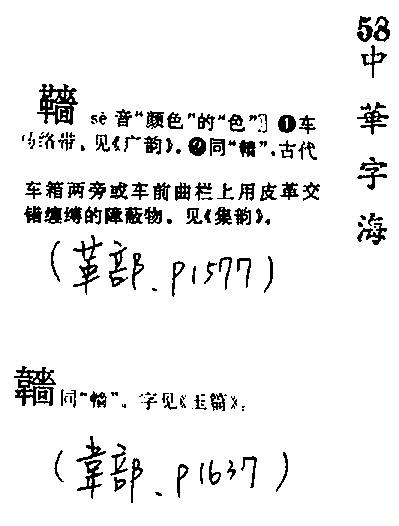 58
中華字海
sè 音“颜色”的“色”。❶车
的络带。见《广韵》。❷同“轖”，古代
车箱两旁或车前曲栏上用皮革交
错缠缚的障蔽物。见《集韵》。
(革部、P1577)
同“轖”。字见《玉篇》。
(韋部、P1637)